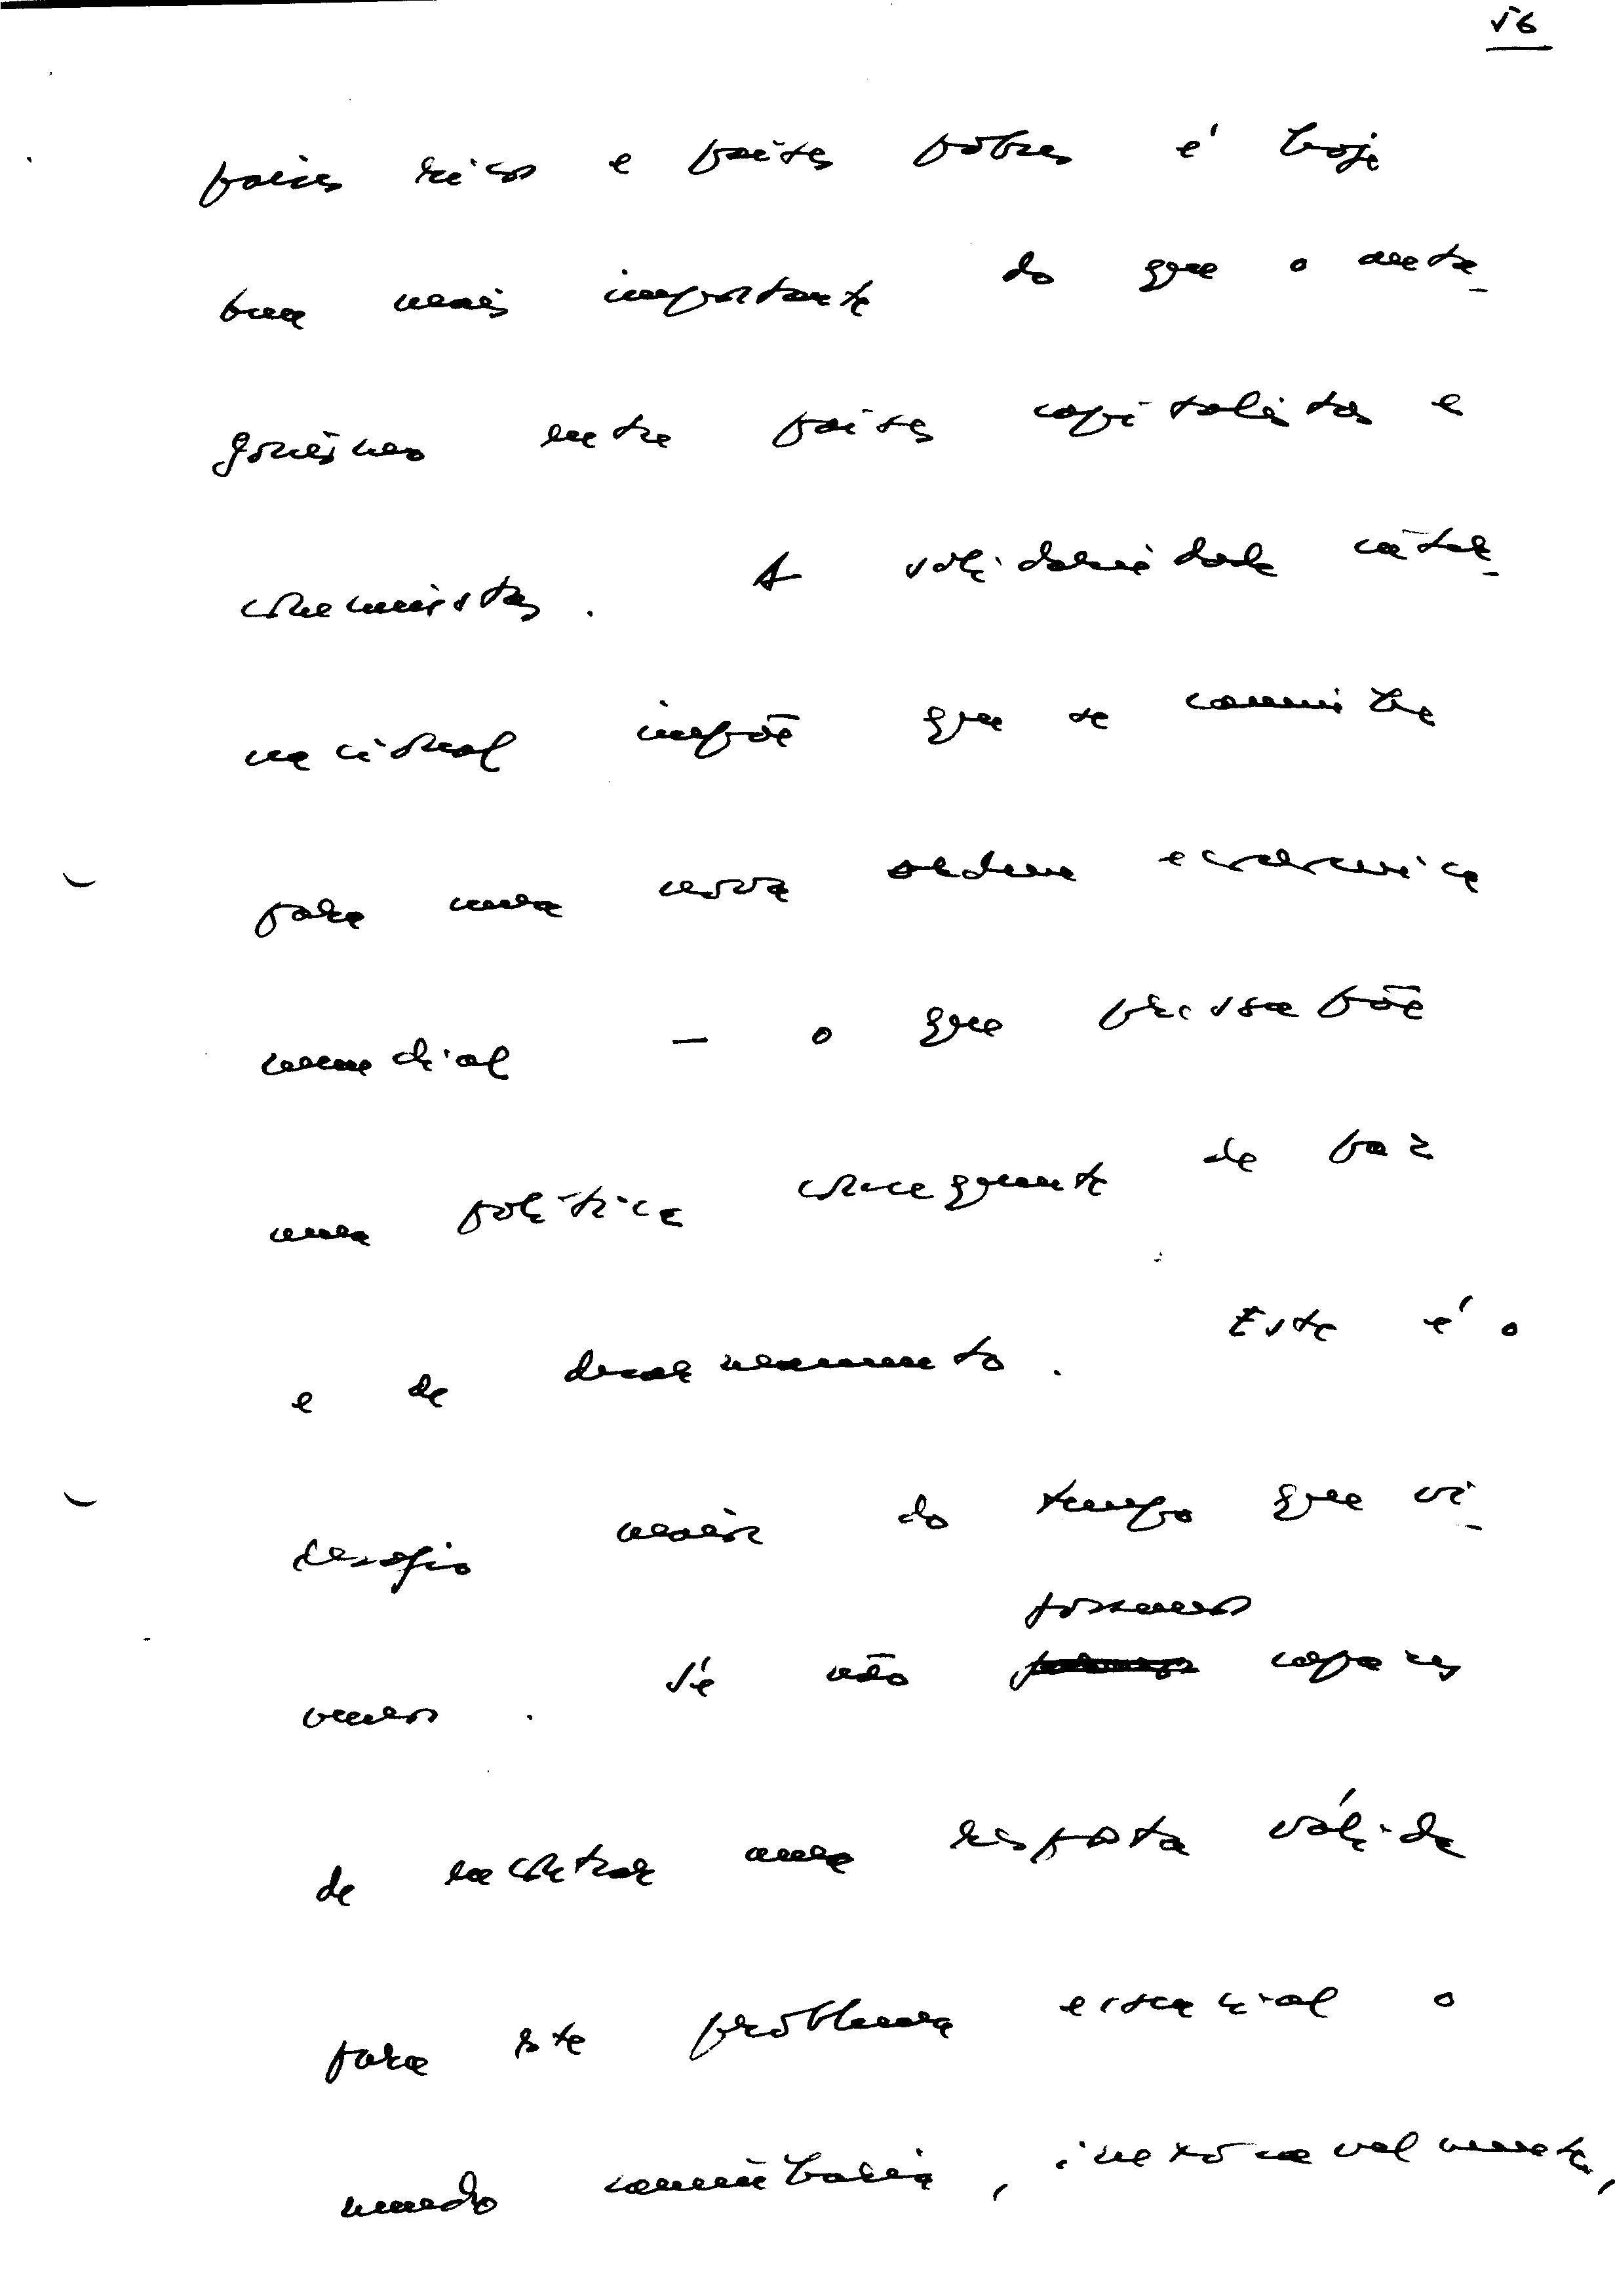 56
países ricos e países pobres é hoje
bem mais importante do que o anta-
gonismo entre países capitalistas e
comunistas. A solidariedade inter-
nacional impõe que se caminhe
para uma nova ordem económica
mundial — o que pressupõe
uma política consequente de paz
e de desarmamento. Este é o
desafio maior do tempo que vi-
formos
vemos. Se não capazes
de encontrar uma resposta válida
para este problema essencial o
mundo caminhará, inexoravelmente,